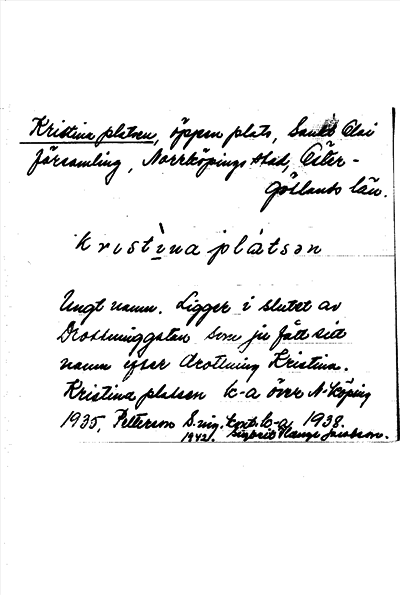 Kristina platsen, öppen plats, Sankt Olai
församling, Norrköpings stad, Öster-
götlands län.
kristìna plátsen
Ungt namn. Ligger i slutet av
Drottninggatan som ju fått sitt
namn efter drottning Kristina.
Kristina platsen k-a över N-köping
1935, Petterson S. ing. kont. k-a 1938.
1942. Sigbrit Plange Jacobson.